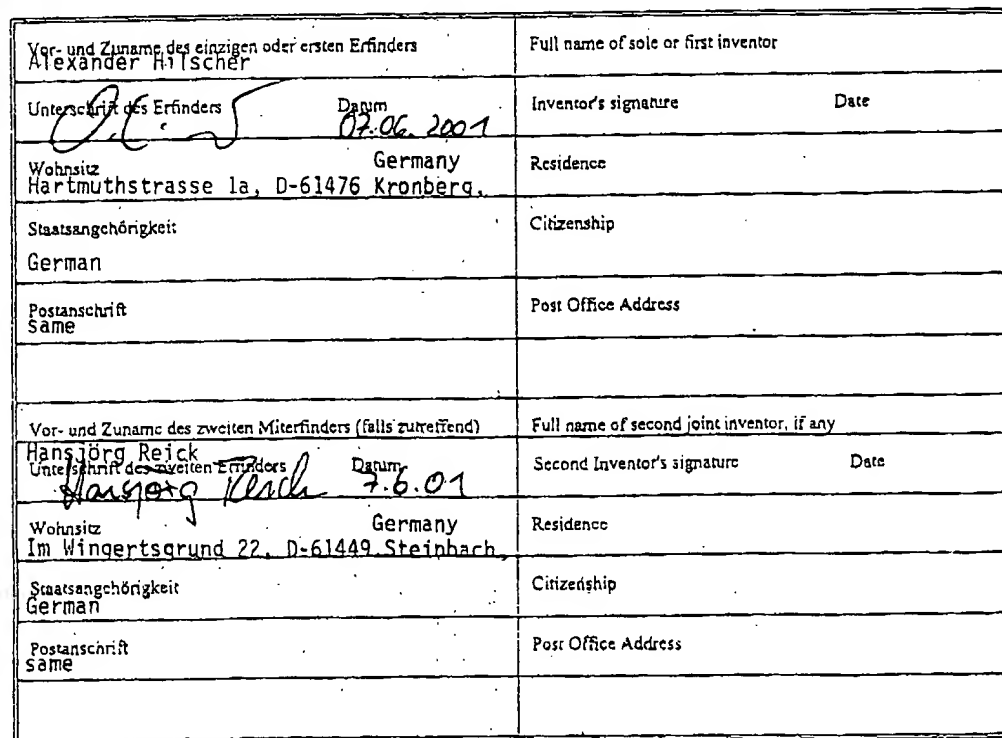 Vor- und Zuname des einzigen oder ersten Erfinders
Alexander Hilscher
Full name of sole or first inventor
Unterschrift des Erfinders Datum
07.06.2001
Inventor's signature Date
Wohnsitz Germany
Hartmuthstrasse 1a, D-61476 Kronberg,
Residence
Staatsangehörigkeit
German
Citizenship
Postanschrift
same
Post Office Address
Vor- und Zuname des zweiten Miterfinders (falls zutreffend)
Hansjörg Reick
Full name of second joint inventor, if any
Unterschrift des zweiten Erfinders Datum
Hansjörg Reick 7.6.01
Second Inventor's signature Date
Wohnsitz Germany
Im Wingertsgrund 22, D-61449 Steinbach,
Residence
Staatsangehörigkeit
German
Citizenship
Postanschrift
same
Post Office Address